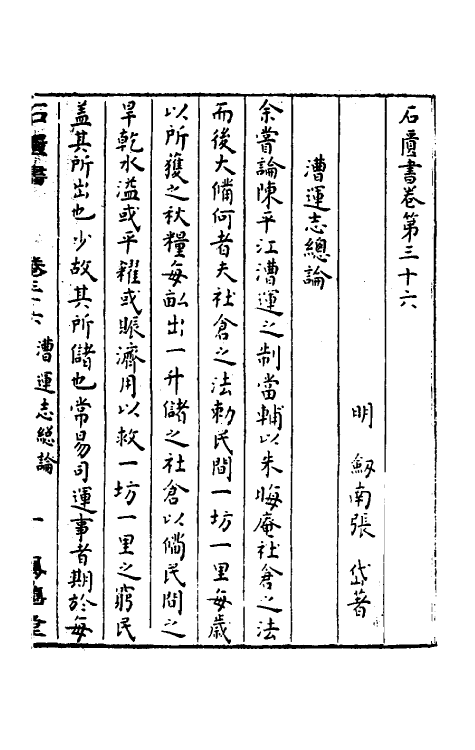 石匱書卷第三十六
明 劒南張 岱著
漕運志總論
余嘗論陳平江漕運之制當輔以朱晦庵社倉之法
而後大備何者夫社倉之法勑民間一坊一里每歲
以所獲之秋糧每畝出一升儲之社倉以備民間之
旱乾水溢或平糴或賑濟用以救一坊一里之窮民
蓋其所出也少故其所儲也常易司運事者期於每
石匱書 卷三十六 漕運志總論 一 鳳嬉堂